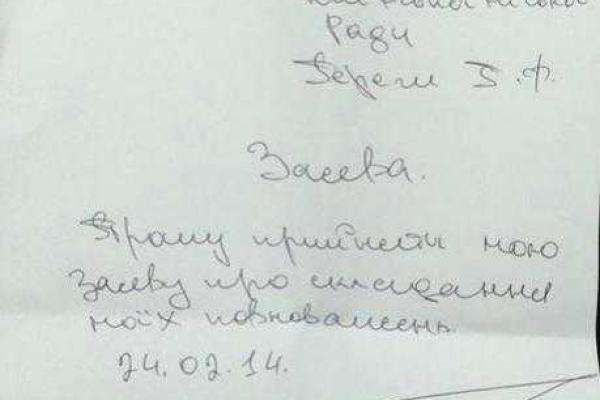 Ради
Береги Б.Ф.
Заява.
Прошу прийняти мою
Заяву про складання
моїх повноважень
24.02.14.